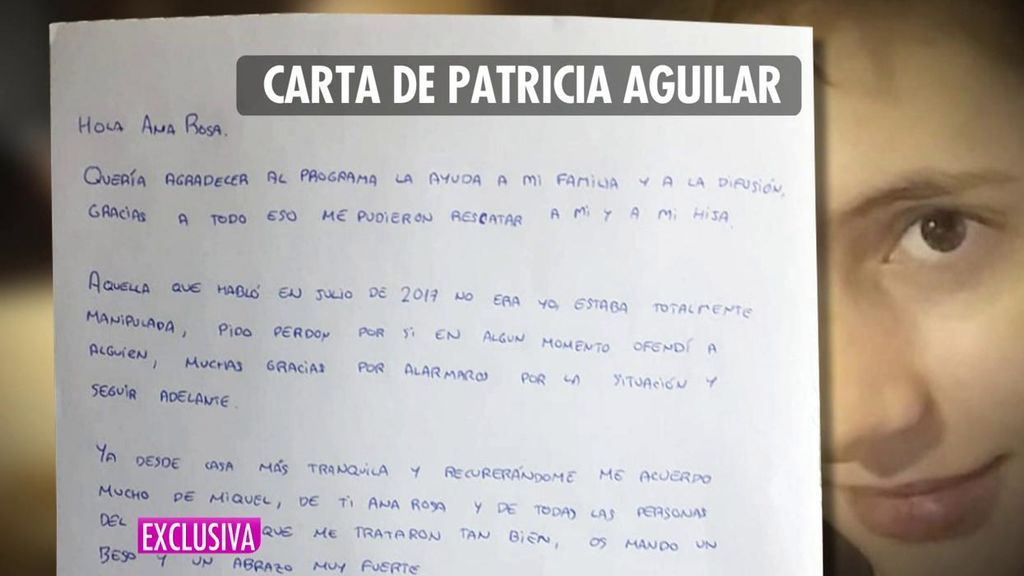 CARTA DE PATRICIA AGUILAR
HOLA ANA ROSA.
QUERÍA AGRADECER AL PROGRAMA LA AYUDA A MI FAMILIA Y A LA DIFUSIÓN,
GRACIAS A TODO ESO ME PUDIERON RESCATAR A MÍ Y A MI HIJA.
AQUELLA QUE HABLÓ EN JULIO DE 2017 NO ERA YO, ESTABA TOTALMENTE
MANIPULADA, PIDO PERDON POR SI EN ALGUN MOMENTO OFENDÍ A
ALGUIEN, MUCHAS GRACIAS POR ALARMAROS POR LA SITUACIÓN Y
SEGUIR ADELANTE.
YA DESDE CASA MÁS TRANQUILA Y RECURERÁNDOME ME ACUERDO
MUCHO DE MIQUEL, DE TI ANA ROSA Y DE TODAS LAS PERSONAS
DEL QUE ME TRATARON TAN BIÉN, OS MANDO UN
BESO Y UN ABRAZO MUY FUERTE
EXCLUSIVA